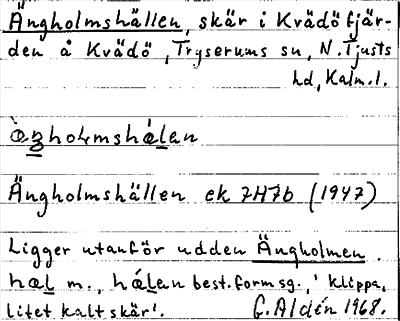 Ängholmshällen, skär i Kvädöfjär-
den å Kvädö, Tryserums sn, N. Tjusts
hd, Kalm. l.
Ängholmshällen ek 7H7b (1947)
Ligger utanför udden Ängholmen.
hæl m., hǽlan best. form sg., 'klippa,
litet kalt skär'. G. Aldén 1968.